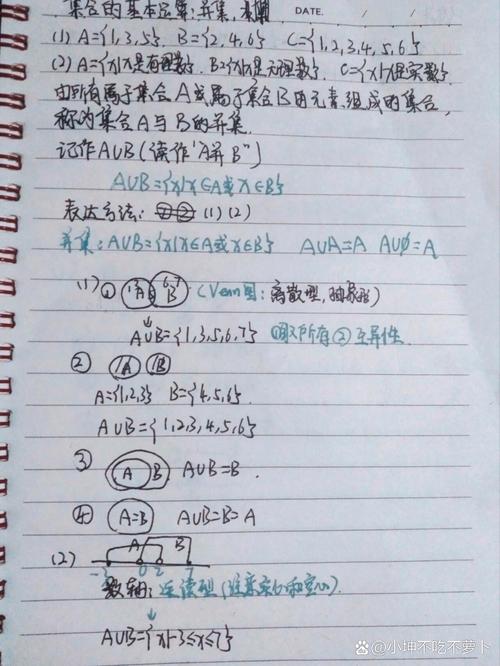 集合的基本运算:并集,
DATE.
(1) A={1,3,5} B={2,4,6} C={1,2,3,4,5,6}
(2) A={x|x是有理数} B={x|x是无理数} C={x|x是实数}
由所有属于集合A或属于集合B的元素组成的集合,
称为集合A与B的并集.
记作A∪B(读作"A并B")
A∪B={x|x∈A或x∈B}
表达方法: (1)(2)
并集:A∪B={x|x∈A或x∈B} A∪A=A A∪∅=A
(1)① A B (Venn图:离散型,抽象形)
A∪B={1,3,5,6,7} ①取所有②互异性.
② A B
A={1,2,3} B={4,5,6}
A∪B={1,2,3,4,5,6}
③ A B A∪B=B.
④ A=B A∪B=B=A
(2) A B
-3 0 2 7
数轴:连续型(谁来实心和空心).
A∪B={x|-3≤x≤7}
小坤不吃不萝卜